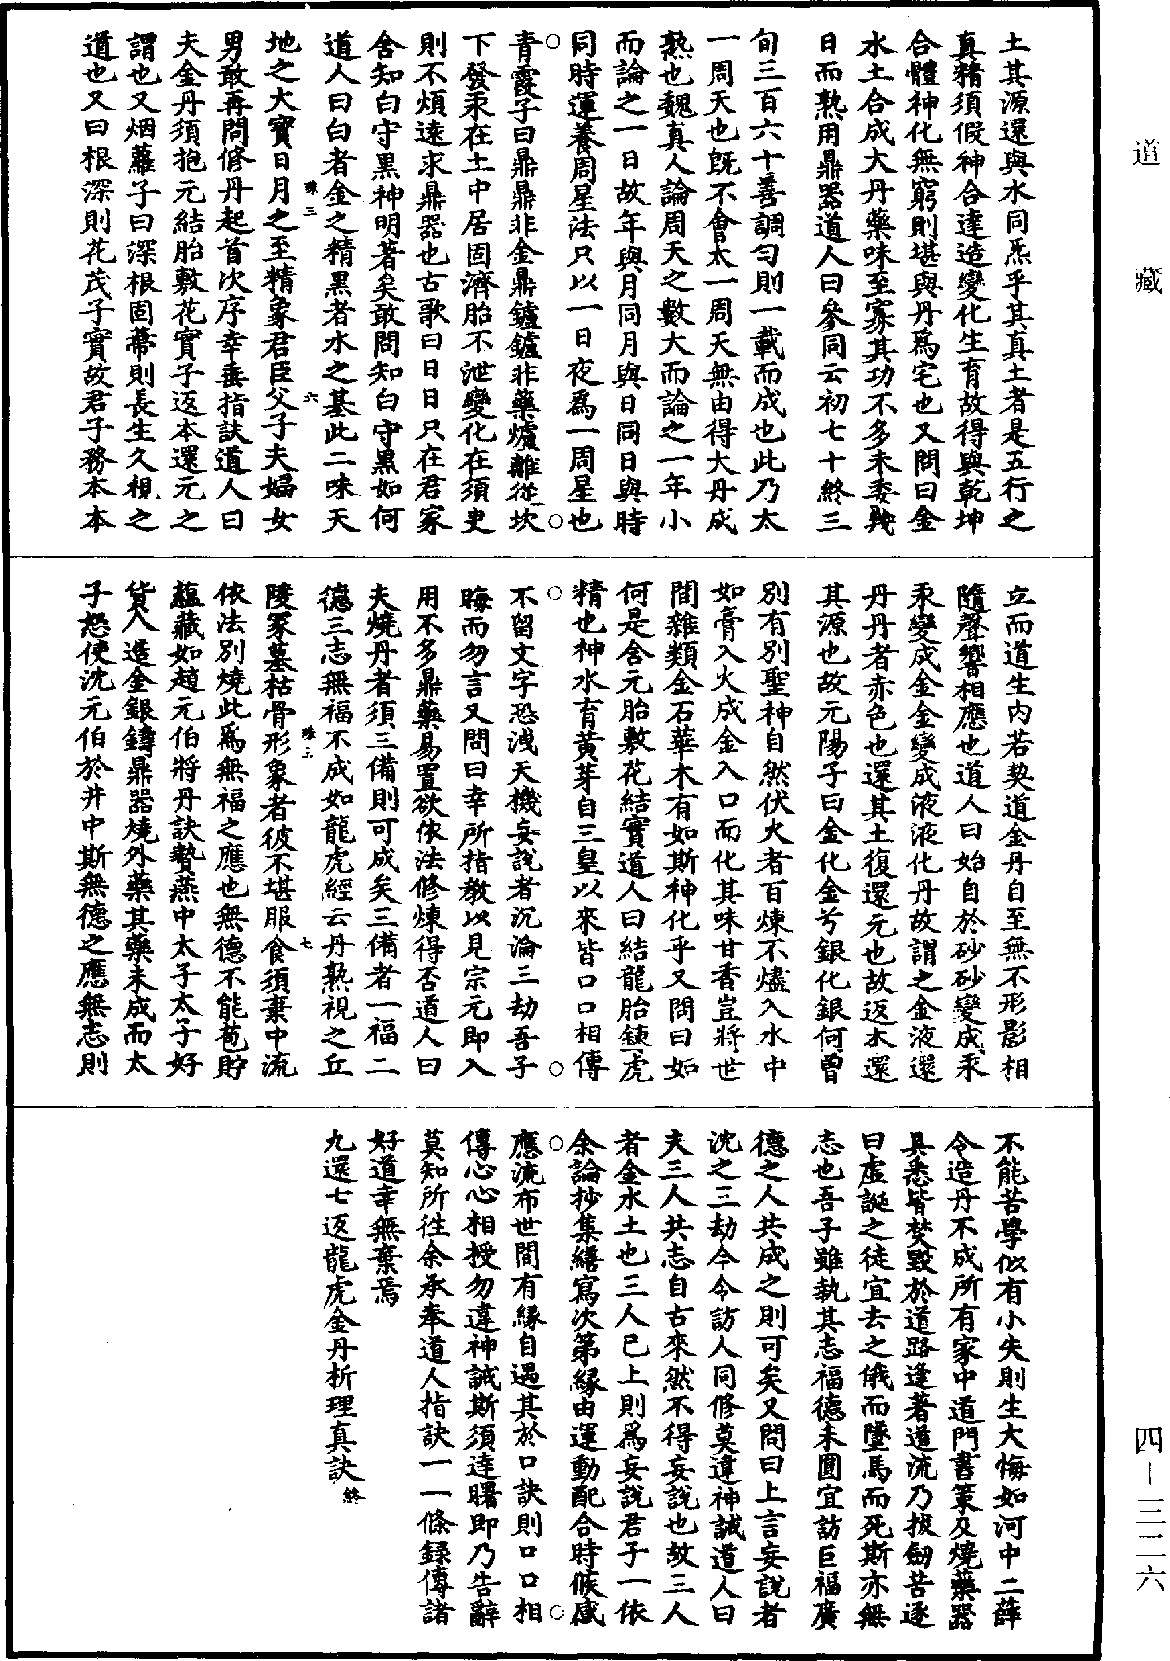 道藏
土其源還與水同炁乎其真土者是五行之
真精須假神合達造變化生育故得與乾坤
合體神化無窮則堪與丹爲宅也又問曰金
水土合成大丹藥味至寡其功不多未委幾
日而熟用鼎器道人曰參同云初七十終三
旬三百六十善調勻則一載而成也此乃太
一周天也旣不會太一周天無由得大丹成
熟也魏真人論周天之數大而論之一年小
而論之一日故年與月同月與日同日與時
同時運養周星法只以一日夜爲一周星也
青霞子曰鼎鼎非金鼎鑪鑪非藥爐離從坎
下發汞在土中居固濟胎不泄變化在須臾
則不煩遠求鼎器也古歌曰日日只在君家
舍知白守黑神明著矣敢問知白守黑如何
道人曰白者金之精黑者水之基此二味天
地之大寶日月之至精象君臣父子夫婦女
男敢再問修丹起首次序幸垂指訣道人曰
夫金丹須抱元結胎敷花實子返本還元之
謂也又烟蘿子曰深根固蔕則長生久視之
道也又曰根深則花茂子實故君子務本本
立而道生內若契道金丹自至無不形影相
隨聲響相應也道人曰始自於砂砂變成汞
汞變成金金變成液液化丹故謂之金液還
丹丹者赤色也還其土復還元也故返本還
其源也故元陽子曰金化金兮銀化銀何曾
別有別聖神自然伏火者百煉不燼入水中
如膏入火成金入口而化其味甘香豈將世
間雜類金石華木有如斯神化乎又問曰如
何是含元胎敷花結實道人曰結龍胎鍊虎
精也神水育黃芽自三皇以來皆口口相傳
不留文字恐洩天機妄說者沉淪三劫吾子
晦而勿言又問曰幸所指教以見宗元即入
用不多鼎藥易置欲依法修煉得否道人曰
夫燒丹者須三備則可成矣三備者一福二
德三志無福不成如龍虎經云丹熟視之丘
陵冢墓枯骨形象者彼不堪服食須棄中流
依法別燒此爲無福之應也無德不能苞貯
蘊藏如趙元伯將丹訣贄燕中太子太子好
貨入造金銀鑄鼎器燒外藥其藥未成而太
子怒使沈元伯於井中斯無德之應無志則
不能苦學似有小失則生大悔如河中二薛
令造丹不成所有家中道門書策及燒藥器
具悉皆焚毀於道路逢著道流乃拔劍苦逐
曰虛誕之徒宜去之俄而墜馬而死斯亦無
志也吾子雖執其志福德未圓宜訪巨福廣
德之人共成之則可矣又問曰上言妄說者
沈之三劫今令訪人同修莫違神誡道人曰
夫三人共志自古來然不得妄說也故三人
者金水土也三人已上則爲妄說君子一依
余論抄集繕寫次第緣由運動配合時候感
應流布世間有緣自遇其於口訣則口口相
傳心心相授勿違神誡斯須達曙即乃告辭
莫知所往余承奉道人指訣一一條錄傳諸
好道幸無棄焉
九還七返龍虎金丹析理真訣終
四－三二六